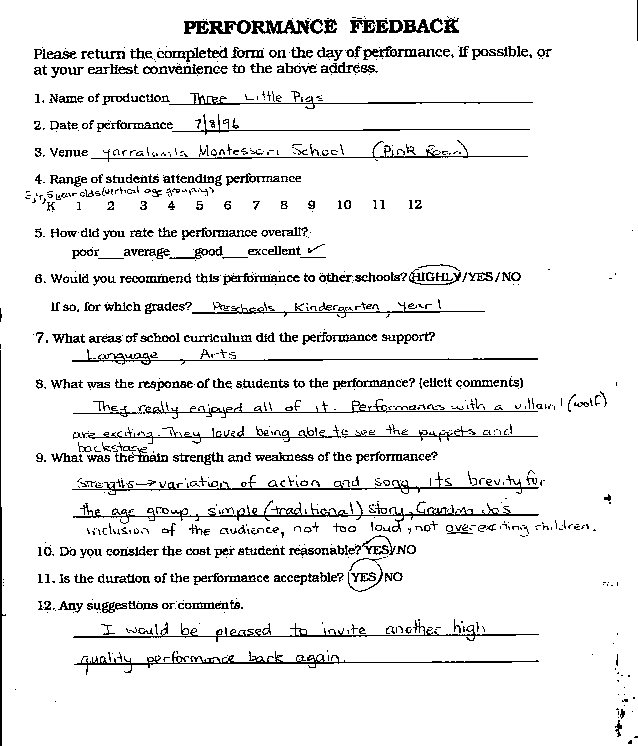 PERFORMANCE FEEDBACK
Please return the completed form on the day of performance, if possible, or
at your earliest convenience to the above address.
1. Name of production Three Little Pigs
2. Date of performance 7/8/96
3. Venue Yarralumla Montessori School (Pink Room)
4. Range of students attending performance
3,4,5 year olds (vertical age grouping)
K 1 2 3 4 5 6 7 8 9 10 11 12
5. How did you rate the performance overall?
poor average good excellent ✓
6. Would you recommend this performance to other schools? HIGHLY/YES/NO
If so, for which grades? Preschools, Kindergarten, Year 1
7. What areas of school curriculum did the performance support?
Language, Arts
8. What was the response of the students to the performance? (elicit comments)
They really enjoyed all of it. Performances with a villain! (wolf)
are exciting. They loved being able to see the puppets and
backstage.
9. What was the main strength and weakness of the performance?
Strengths → variation of action and song, its brevity for
the age group, simple (traditional) story, Grandma
inclusion of the audience, not too loud, not overexciting children.
10. Do you consider the cost per student reasonable? YES/NO
11. Is the duration of the performance acceptable? YES/NO
12. Any suggestions or comments.
I would be pleased to invite another high
quality performance back again.